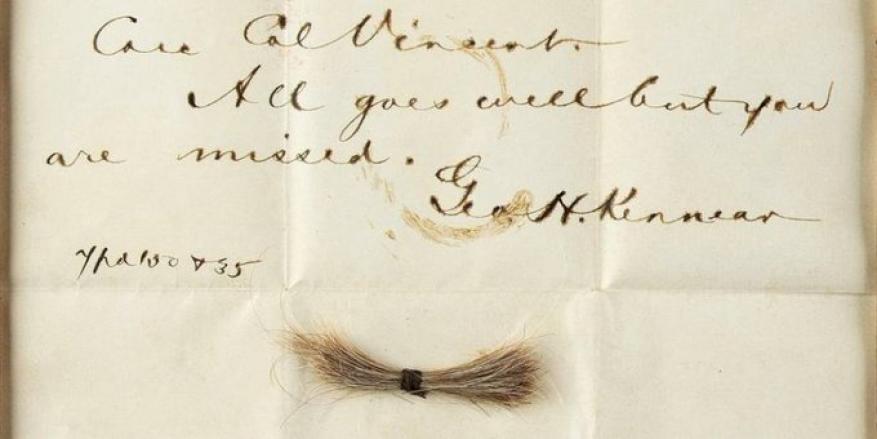 Care Col Vincent.
All goes well but you
are missed.
Geo. H. Kinnear